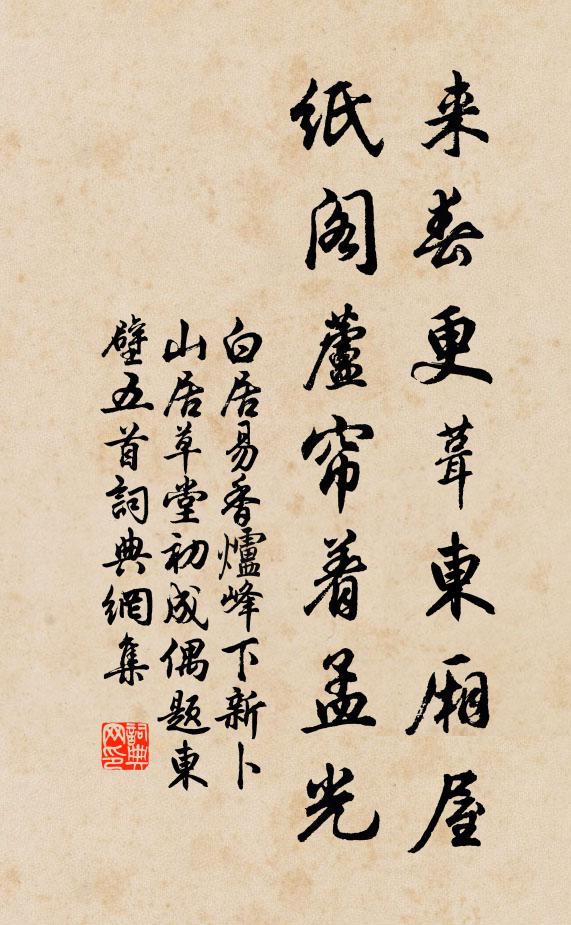 来春更葺東厢屋
紙阁蘆帘着孟光
白居易香爐峰下新卜
山居草堂初成偶题東
壁五首詞典網集
詞典网印